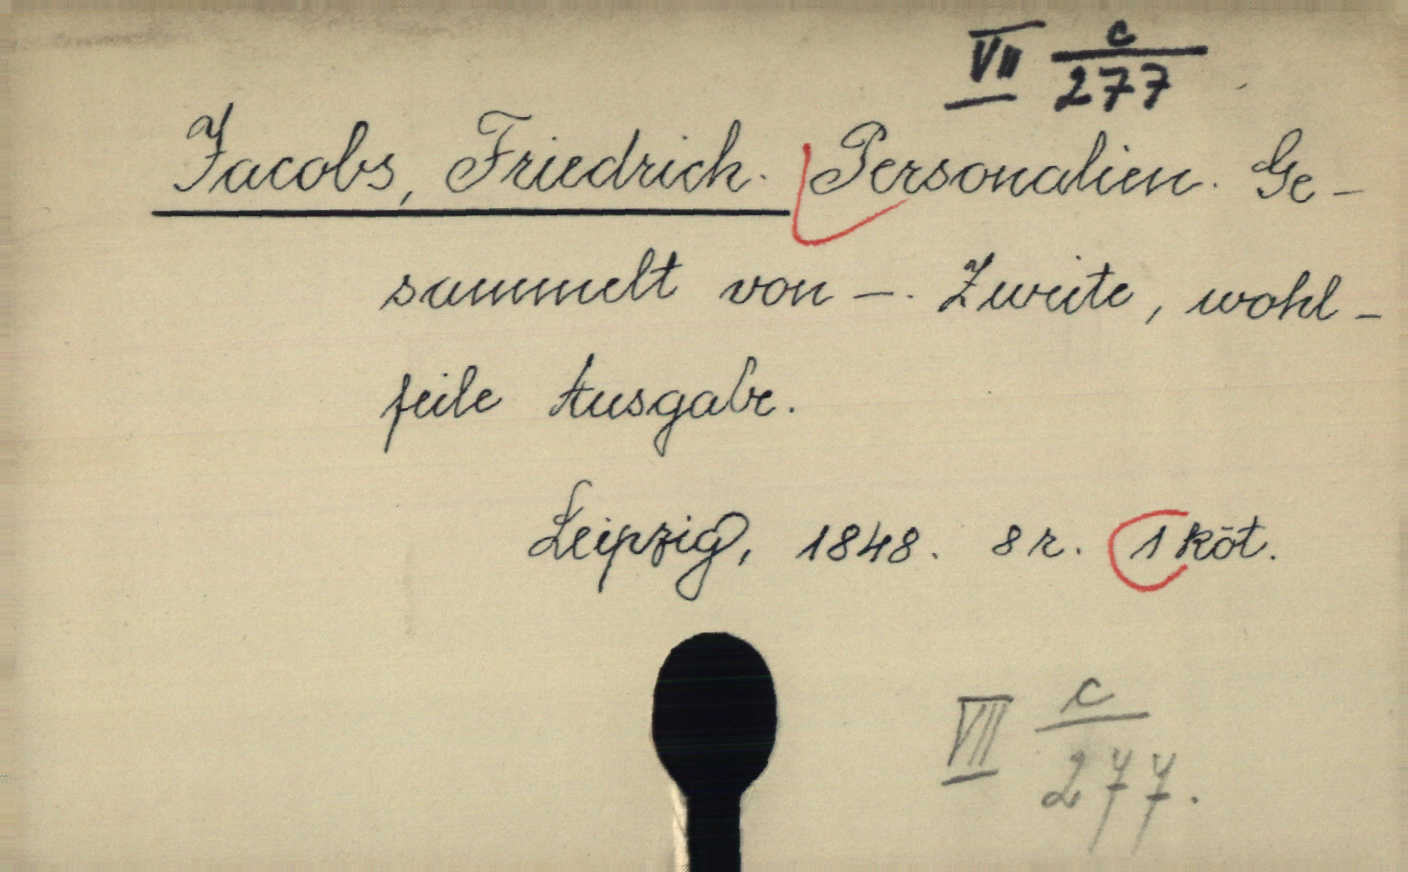 VII c/277
Jacobs, Friedrich. Personalien. Ge-
sammelt von —. Zweite, wohl-
feile Ausgabe.
Leipzig, 1848. 8r. 1 köt.
VII c/277.